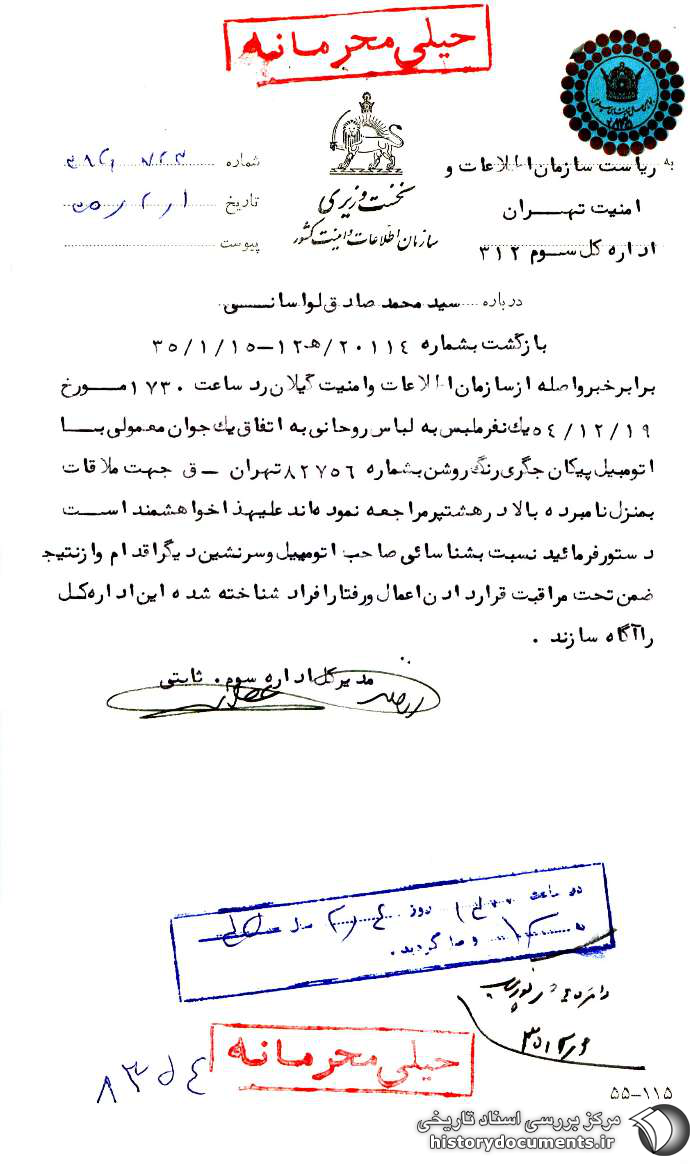 خیلی محرمانه
به ریاست سازمان اطلاعات و
امنیت تهران
اداره کل سوم ۳۱۲
نخست وزیری
سازمان اطلاعات و امنیت کشور
شماره
تاریخ
پیوست
درباره سید محمد صادق لواسانی
بازگشت بشماره ۲۰۱۱٤/ه‍۱۲-۳۵/۱/۱۵
برابر خبر واصله از سازمان اطلاعات و امنیت گیلان رد ساعت ۱۷۳۰ مورخ
۵٤/۱۲/۱۹ یك نفر ملبس به لباس روحانی به اتفاق یك جوان معمولی با
اتومبیل پیکان جگری رنگ روشن بشماره ۸۲۷۵۶ تهران - ق جهت ملاقات
بمنزل نامبرده بالا در هشتپر مراجعه نموده اند علیهذا خواهشمند است
دستور فرمائید نسبت بشناسائی صاحب اتومبیل و سرنشین دیگر اقدام و از نتیجه
ضمن تحت مراقبت قرار دادن اعمال و رفتار افراد شناخته شده این اداره کل
را آگاه سازند .
مدیر کل اداره سوم . ثابتی
در ساعت روز سال
به و صا گردید .
خیلی محرمانه
۸۳۵٤
۵۵-۱۱۵
مرکز بررسی اسناد تاریخی
historydocuments.ir